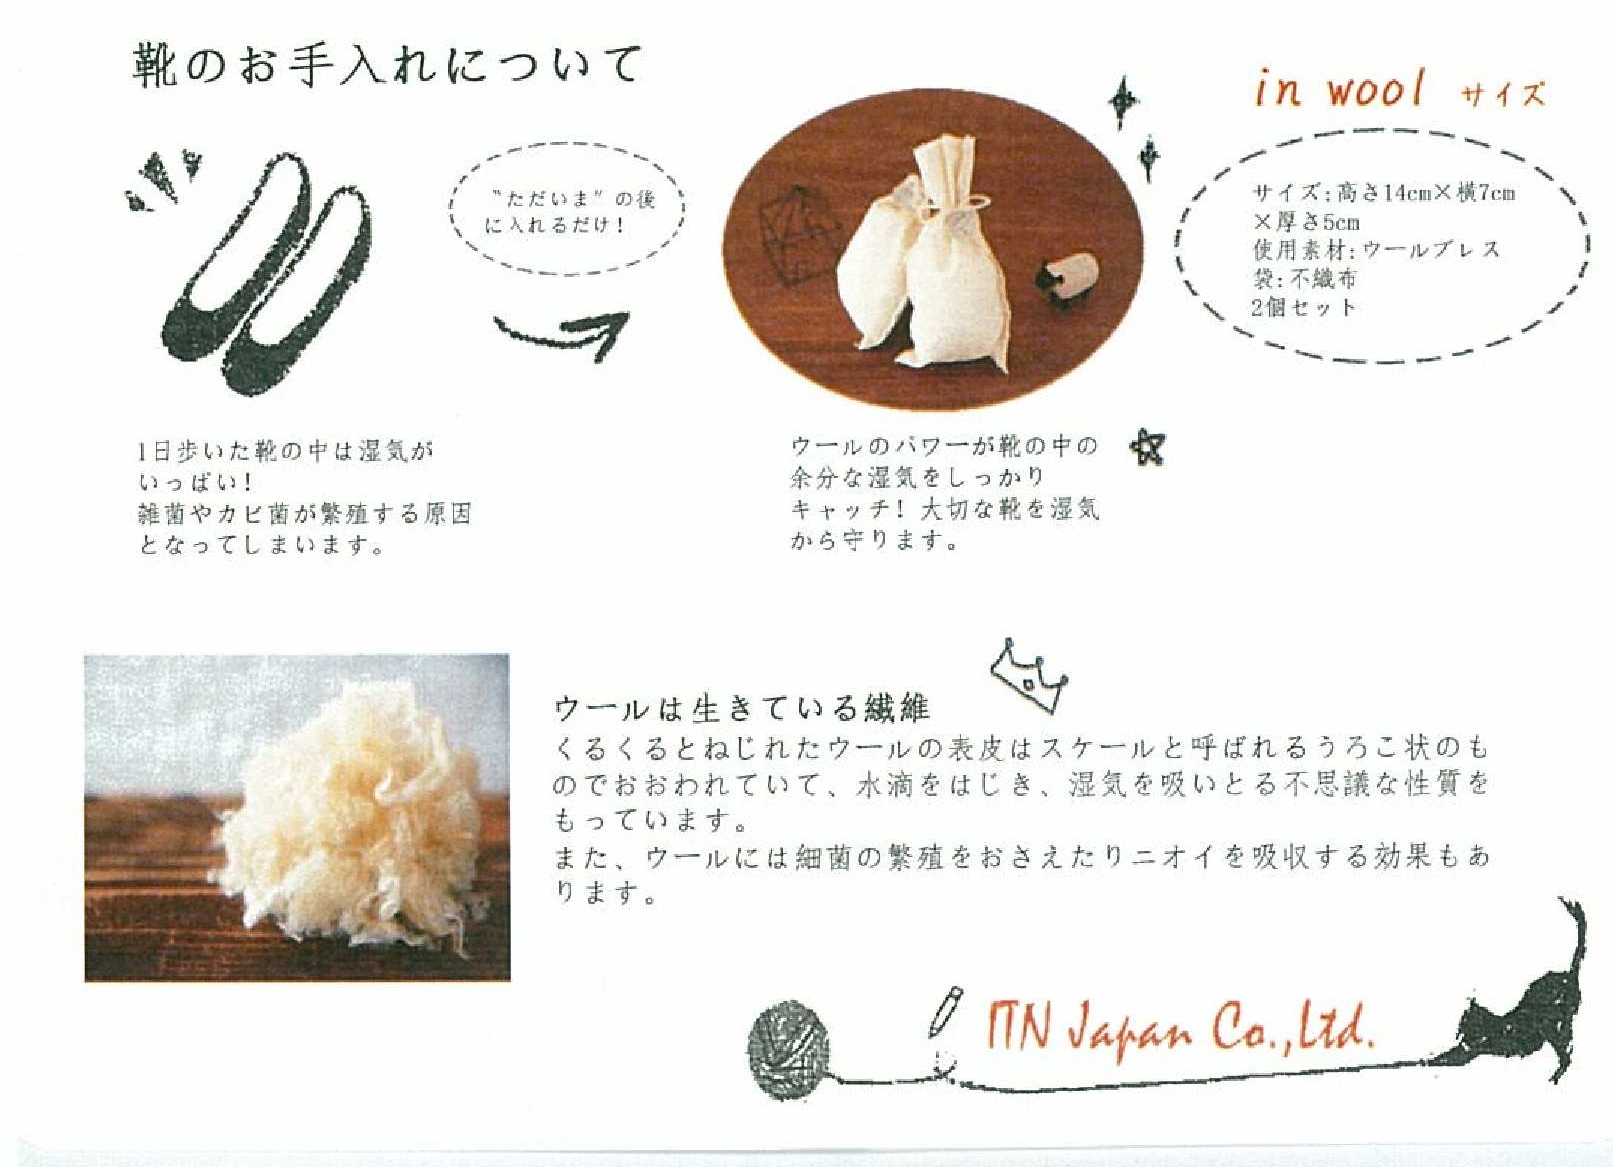 靴のお手入れについて
"ただいま"の後
に入れるだけ！
in wool サイズ
サイズ:高さ14cm×横7cm
×厚さ5cm
使用素材:ウールブレス
袋:不織布
2個セット
1日歩いた靴の中は湿気が
いっぱい！
雑菌やカビ菌が繁殖する原因
となってしまいます。
ウールのパワーが靴の中の
余分な湿気をしっかり
キャッチ！大切な靴を湿気
から守ります。
ウールは生きている繊維
くるくるとねじれたウールの表皮はスケールと呼ばれるうろこ状のも
のでおおわれていて、水滴をはじき、湿気を吸いとる不思議な性質を
もっています。
また、ウールには細菌の繁殖をおさえたりニオイを吸収する効果もあ
ります。
ITN Japan Co.,Ltd.